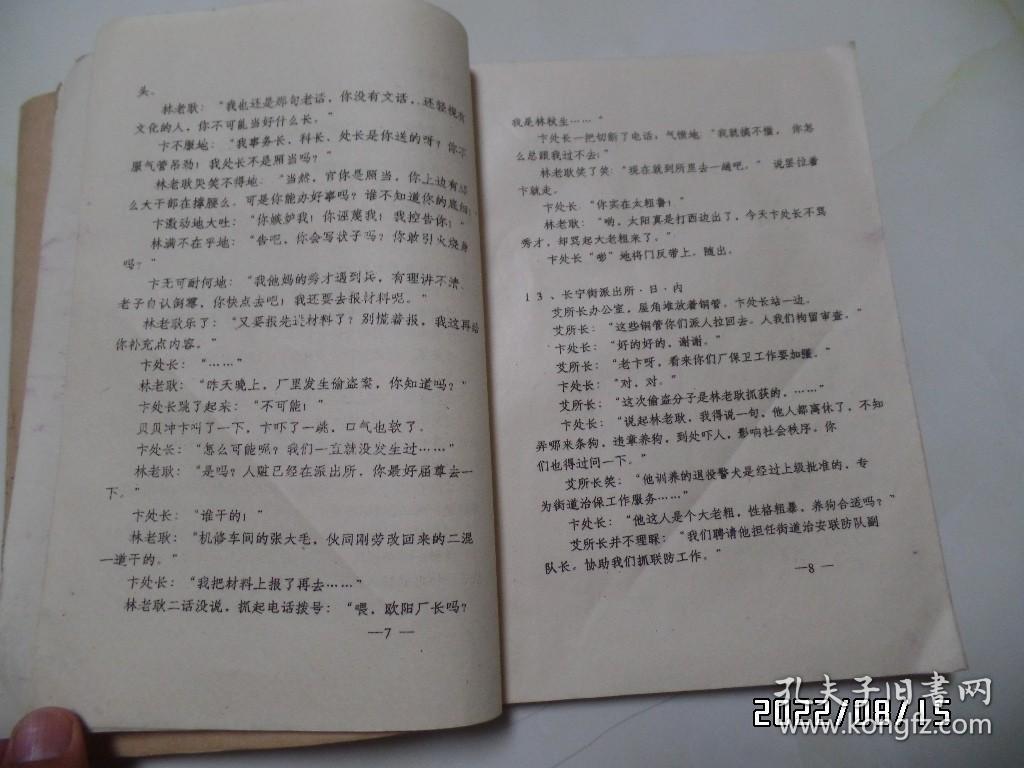 头、
林老耿：“我也还是那句老话，你没有文话，还轻视有
文化的人，你不可能当好什么长。”
卞不服地：“我事务长、科长、处长是你送的呀？你不
屎气管吊劲！我处长不是照当吗？”
林老耿哭笑不得地：“当然，官你是照当，你上边有
么大干部在撑腰么。可是你能办好事吗？谁不知道你的底细！”
卞激动地大吐：“你嫉妒我！你诬蔑我！我控告你！”
林满不在乎地：“告吧，你会写状子吗？你敢引火烧身
吗？”
卞无可耐何地：“我他妈的秀才遇到兵，有理讲不清、
老子自认倒霉，你快点去吧！我还要去报材料呢。”
林老耿乐了：“又要报先进材料了？别慌着报，我这再给
你补充点内容。”
卞处长：“……”
林老耿：“昨天晚上，厂里发生偷盗案，你知道吗？”
卞处长跳了起来：“不可能！”
贝贝冲卞叫了一下，卞吓了一跳，口气也软了。
卞处长：“怎么可能呢？我们一直就没发生过……”
林老耿：“是吗？人赃已经在派出所，你最好屈尊去一
下。”
卞处长：“谁干的！”
林老耿：“机修车间的张大毛，伙同刚劳改回来的二混
一道干的。”
卞处长：“我把材料上报了再去……”
林老耿二话没说，抓起电话拨号：“喂，欧阳厂长吗？
—7—
我是林秋生……”
卞处长一把切断了电话，气愤地：“我就搞不懂，你怎
么总跟我过不去！”
林老耿笑了笑：“现在就到所里去一趟吧。”说罢拉着
卞就走。
卞处长：“你实在太粗鲁！”
林老耿：“哟，太阳真是打西边出了，今天卞处长不骂
秀才，却骂起大老粗来了。”
卞处长“嘭”地将门反带上。随出。
13、长宁街派出所·日·内
艾所长办公室，屋角堆放着铜管。卞处长站一边。
艾所长：“这些铜管你们派人拉回去。人我们拘留审查。”
卞处长：“好的好的，谢谢。”
艾所长：“老卞呀，看来你们厂保卫工作要加强。”
卞处长：“对，对。”
艾所长：“这次偷盗分子是林老耿抓获的，……”
卞处长：“说起林老耿，我得说一句，他人都离休了，不知
弄哪来条狗，违章养狗，到处吓人，影响社会秩序。你
们也得过问一下。”
艾所长笑：“他训养的退役警犬是经过上级批准的，专
为街道治保工作服务……”
卞处长：“他这人是个大老粗，性格粗暴，养狗合适吗？”
艾所长并不理睬：“我们聘请他担任街道治安联防队副
队长。协助我们抓联防工作。”
—8—
孔夫子旧書网
2022/08/15
www.kongfz.com